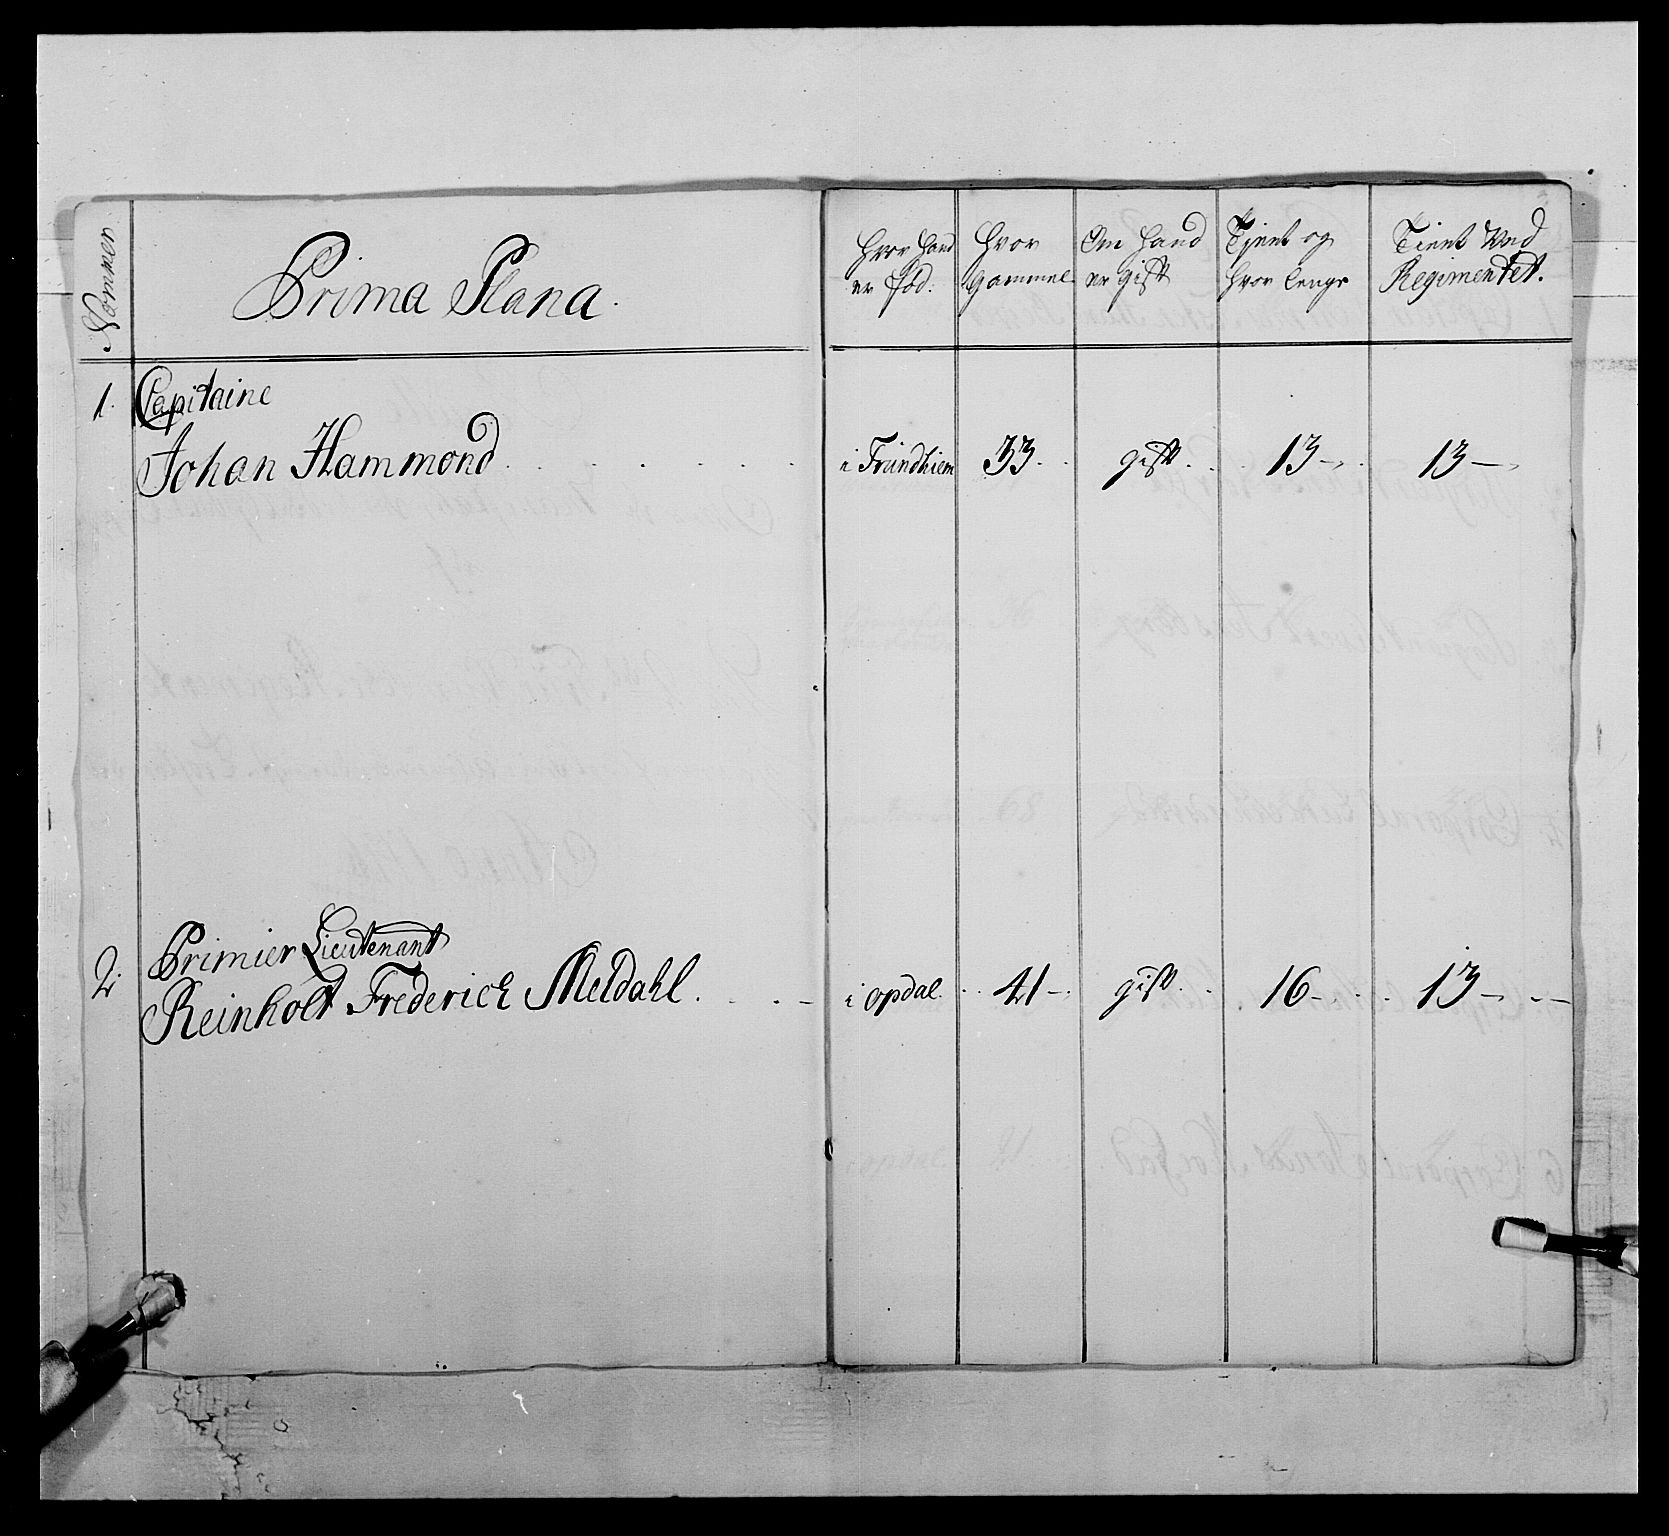 Nommer
Prima Plana.
Hvor Hand
er fød.
Hvor
gammel
Om Hand
er gift
Tjent og
hvor lenge
Tient Ved
Regimentet.
1. Capitaine
Johan Hammond
i Trundhiem 33. gift. 13 13
2. Primier Lieutenant
Reinholt Frederich Meldahl.
i opdal. 41 gift. 16 13